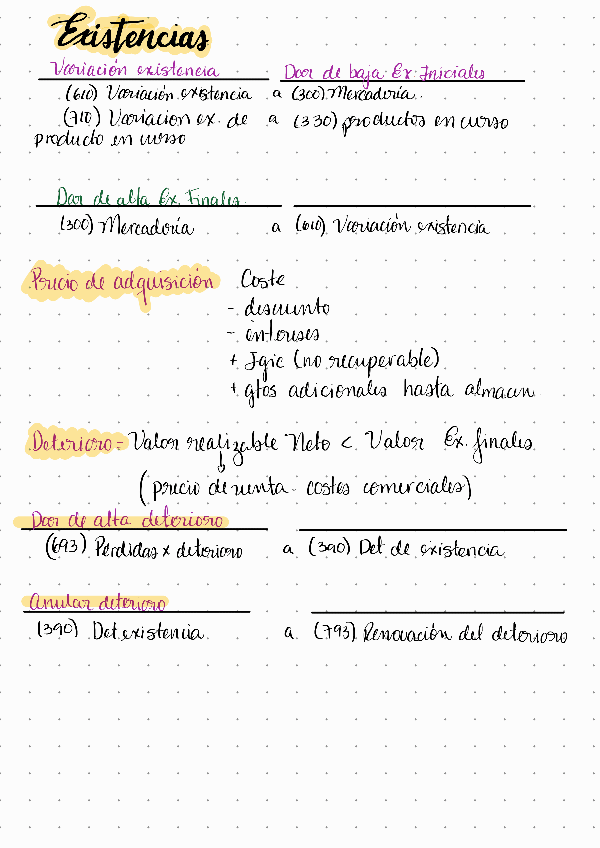 Existencias
Variación existencia Dar de baja Ex. Iniciales
(610) Variación existencia a (300) Mercadoría.
(710) Variacion ex. de a (330) productos en curso
producto en curso
Dar de alta Ex. Finales.
(300) Mercadoría a (610) Variación existencia
Precio de adquisición Coste
- descuento
- intereses
+ Igic (no recuperable)
+ gtos adicionales hasta almacen
Deterioro = Valor realizable Neto < Valor Ex. finales
↓
(precio de venta - costes comerciales)
Dar de alta deterioro
(693) Perdidas x deterioro a (390) Det de existencia
Anular deterioro
(390) Det. existencia. a (793) Renovación del deterioro